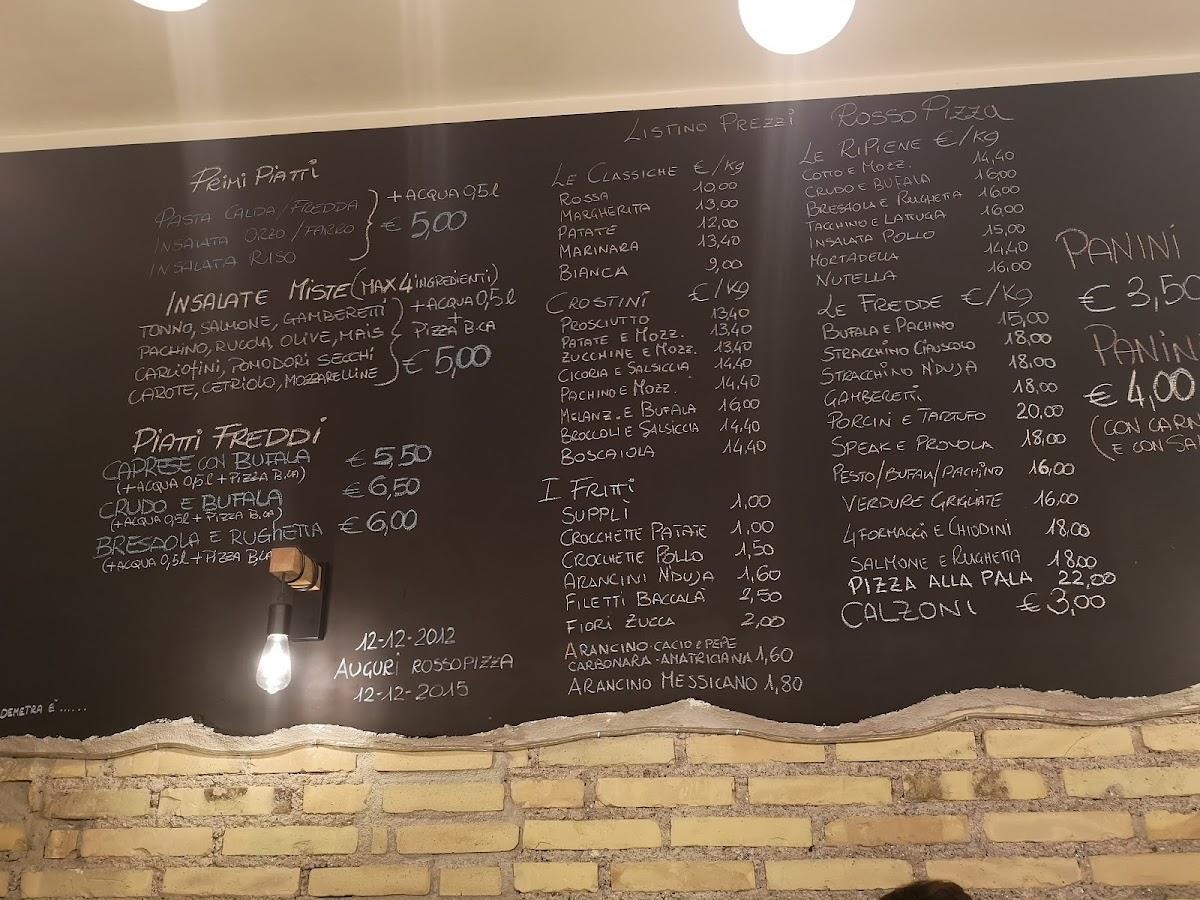 Listino Prezzi RossoPizza
Primi Piatti
Pasta Calda/Fredda
Insalata Orzo/Farro
Insalata Riso
+ Acqua 0,5l
€ 5,00
Insalate Miste (Max 4 ingredienti)
Tonno, Salmone, Gamberetti
Pachino, Rucola, Olive, Mais
Carliofini, Pomodori Secchi
Carote, Cetriolo, Mozzarelline
+ Acqua 0,5l
+
Pizza B.ca
€ 5,00
Piatti Freddi
Caprese con Bufala € 5,50
(+ Acqua 0,5l + Pizza B.ca)
Crudo e Bufala € 6,50
(+ Acqua 0,5l + Pizza B.ca)
Bresaola e Rughetta € 6,00
(+ Acqua 0,5l + Pizza B.ca
12-12-2012
Auguri RossoPizza
12-12-2015
Demetra è......
Le Classiche €/Kg
Rossa 10,00
Margherita 13,00
Patate 12,00
Marinara 13,40
Bianca 9,00
Crostini €/Kg
Prosciutto 13,40
Patate e Mozz. 13,40
Zucchine e Mozz. 13,40
Cicoria e Salsiccia 14,40
Pachino e Mozz. 14,40
Melanz. e Bufala 16,00
Broccoli e Salsiccia 14,40
Boscaiola 14,40
I Fritti
Supplì 1,00
Crocchette Patate 1,00
Crocchette Pollo 1,50
Arancini Nduja 1,60
Filetti Baccalà 2,50
Fiori Zucca 2,00
Arancino Cacio e Pepe
Carbonara - Amatriciana 1,60
Arancino Messicano 1,80
Le Ripiene €/Kg
Cotto e Mozz. 14,40
Crudo e Bufala 16,00
Bresaola e Rughetta 16,00
Tacchino e Lattuga 16,00
Insalata Pollo 15,00
Mortadella 14,40
Nutella 16,00
Le Fredde €/Kg
Bufala e Pachino 15,00
Stracchino Ciauscolo 18,00
Stracchino Nduja 18,00
Gamberetti 18,00
Porcini e Tartufo 20,00
Speak e Provola 18,00
Pesto/Bufala/Pachino 16,00
Verdure Grigliate 16,00
4 Formaggi e Chiodini 18,00
Salmone e Rughetta 18,00
Pizza alla Pala 22,00
Calzoni € 3,00
Panini
€ 3,50
Panin
€ 4,00
(con carn
e con sa